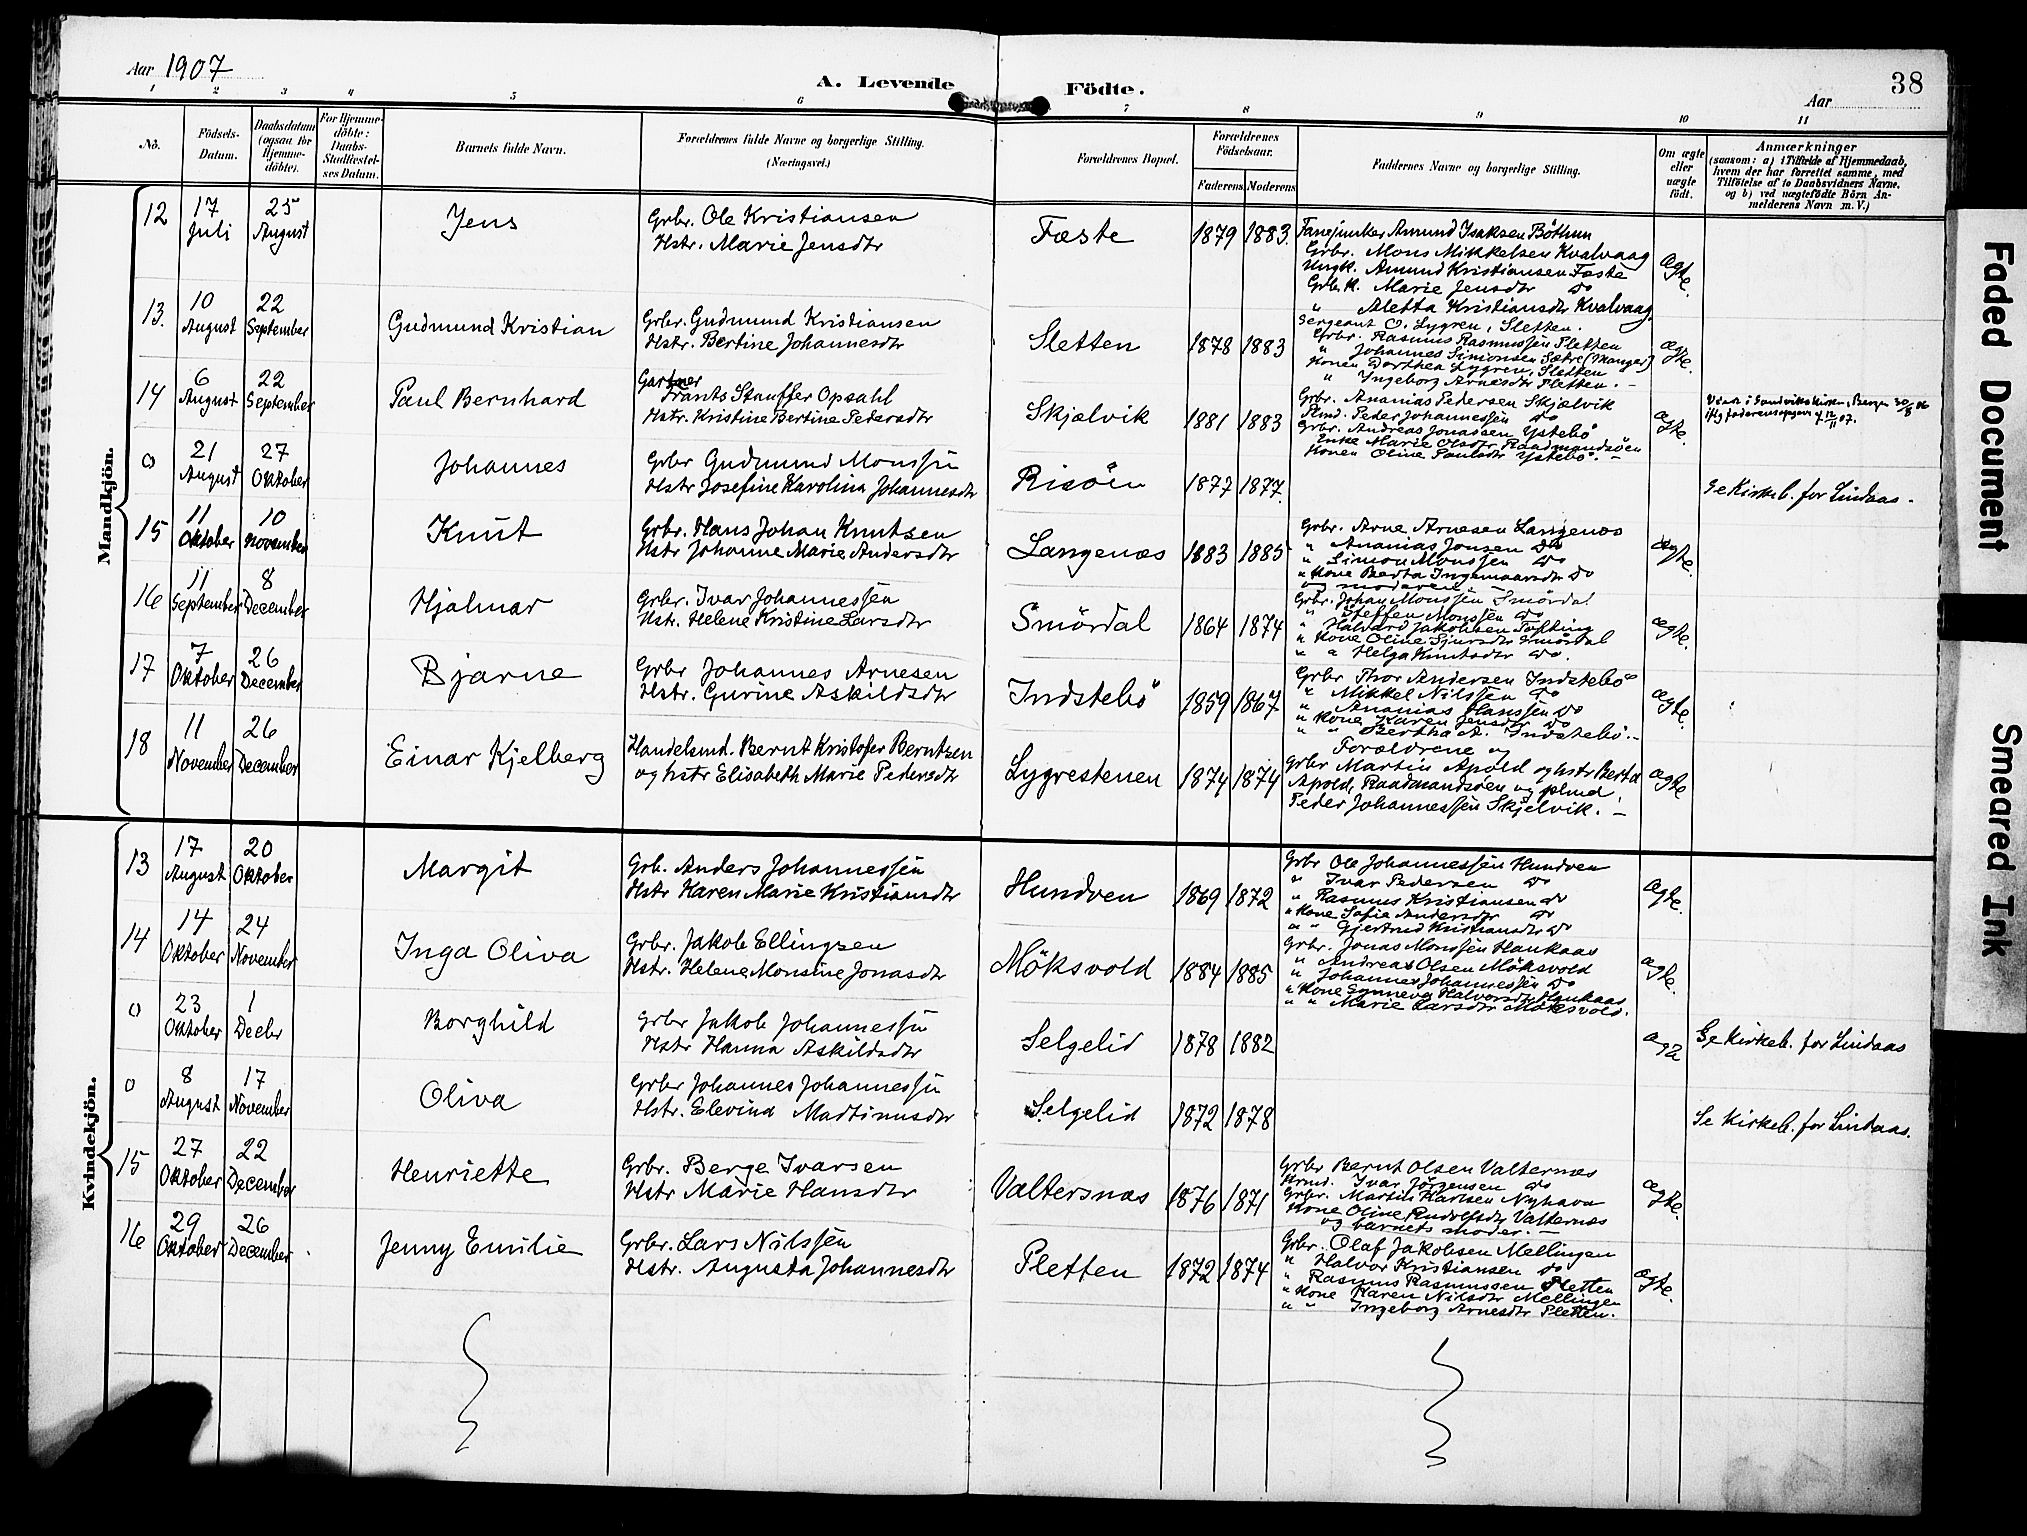 Aar 1907
A. Levende Födte.
38
Aar
1 2 3 4 5 6 7 8 9 10 11
No.
Födsels-
Datum.
Daabsdatum
(ogsaa for
Hjemme-
döbte).
For Hjemme-
döbte:
Daabs-
Stadfæstel-
ses Datum.
Barnets fulde Navn.
Forældrenes fulde Navne og borgerlige Stilling.
(Næringsvei.)
Forældrenes Bopæl.
Forældrenes
Födselsaar.
Faderens Moderens
Faddernes Navne og borgerlige Stilling.
Om ægte
eller
uægte
födt.
Anmærkninger
(saasom: a) i Tilfælde af Hjemmedaab,
hvem der har forrettet samme, med
Tilföielse af to Daabsvidners Navne,
og b) ved uægtefödte Börn An-
melderens Navn m. V.)
Mandkjön.
12 17 Juli 25 August Jens
Grbr. Ole Kristiansen
Hstr. Marie Jensdtr
Fæste 1879 1883.
Fanejunker Amund Isaksen Böthun
Grbr. Mons Mikkelsen Kvalvaag
Ungk. Amund Kristiansen Fæste
Grbr.k. Marie Jensdtr do
" Aletta Kristiansdtr Kvalvaag
ægte.
13. 10 August 22 September Gudmund Kristian
Grbr. Gudmund Kristiansen
Hstr. Bertine Johannesdtr
Sletten 1878 1883
Sergeant O. Lygren, Sletten.
Grbr. Rasmus Rasmussen Sletten
" Johannes Simonsen Sætre (Manger)
Konen Dorthea Lygren, Sletten
" Ingeborg Arnesdtr Sletten. —
ægte.
14 6 August 22 September Paul Bernhard
Gartner
Frants Stauffer Opsahl
Hstr. Kristine Bertine Pedersdtr
Skjælvik 1881 1883
Grbr. Ananias Pedersen Skjælvik
Peder Johannessen do
Grbr. Andreas Jonassen Ystebö
Enke Marie Olsdtr Raadmandsöen
Konen Oline Paulsdtr Ystebö. —
ægte.
i Sandvikskirken, Bergen 30/8 06
0 21 August 27 Oktober Johannes
Grbr Gudmund Monssen
Hstr Josefine Karolina Johannesdtr
Risöen 1877 1877.
Se Kirkeb. for Lindaas.
15 11 Oktober 10 November Knut
Grbr. Hans Johan Knutsen
Hstr Johanne Marie Andersdtr
Langenæs 1883 1885
Grbr. Arne Arnesen Langenæs
" Ananias Jonsen do
" Simon Monssen do
" Kone Berta Ingemaarsdtr do
og moderen
ægte.
16 11 September 8 December Hjalmar
Grbr. Ivar Johannessen
Hstr. Helene Kristine Larsdtr
Smördal 1864 1874
Grbr. Johan Monssen Smördal
" Steffen Monssen do
" Halvard Jakobsen Tofting
" Kone Oline Sjursdtr Smördal
" " Helga Knutsdtr do.
ægte.
17 7 Oktober 26 December Bjarne
Grbr Johannes Arnesen
Hstr. Gurine Askildsdtr
Indstebö 1859 1867
Grbr Thor Andersen Indstebö
" Mikkel Nilssen do
" Ananias Hanssen do
" Kone Karen Jensdtr do
" " Bertha A. Indstebö. —
ægte.
18 11 November 26 December Einar Kjelberg
Handelsmd. Bernt Kristofer Berntsen
og hstr Elisabeth Marie Pedersdtr
Lygrestenen 1874 1874
Forældrene og
Grbr Martin Apold og hstr Berta
Apold, Raadmandsöen og plmd.
Peder Johannessen Skjelvik. —
ægte
Kvindekjön.
13 17 August 20 Oktober Margit
Grb. Anders Johannessen
Hstr Karen Marie Kristiansdtr
Hundven 1869 1872
Grbr Ole Johannessen Hundven
" Ivar Pedersen do
" Rasmus Kristiansen do
" Kone Sofie Andersdtr do
" " Gjertrud Kristiansdtr do
ægte.
14 14 Oktober 24 November Inga Oliva
Grbr. Jakob Ellingsen
Hstr. Helene Monsine Jonasdtr
Möksvold 1884 1885
Grbr. Jonas Monssen Haukaas
" Andreas Olsen Möksvold
" Johannes Johannessen do
" Kone Synneva Halvorsdtr Haukaas
" " Marie Larsdtr Möksvold.
ægte.
0 23 Oktober 1 Decbr Borghild
Grbr Jakob Johannessen
Hstr Hanna Askildsdtr
Selgelid 1878 1882
Se Kirkeb. for Lindaas
0 8 August 17 November Oliva
Grbr Johannes Johannessen
Hstr. Elevina Martinusdtr
Selgelid 1872 1878
Se Kirkeb. for Lindaas.
15 27 Oktober 22 December Henriette
Grbr. Berge Ivarsen
Hstr Marie Hansdtr
Valtersnæs 1876 1871
Grbr Bernt Olsen Valternæs
Ivar Jörgensen do
Grbr. Martin Karlsen Nyhavn
Kone Oline Rudolfsdtr Valternæs
og barnets moder. —
ægte.
16 29 Oktober 26 December Jenny Emilie
Grbr. Lars Nilssen
Hstr. Augusta Johannesdtr
Sletten 1872 1874
Grbr. Olaf Jakobsen Mellingen
" Halvor Kristiansen do
" Rasmus Rasmussen Sletten
" Kone Karen Nilsdtr Mellingen
" " Ingeborg Arnesdtr Sletten.
ægte.
Faded Document
Smeared Ink